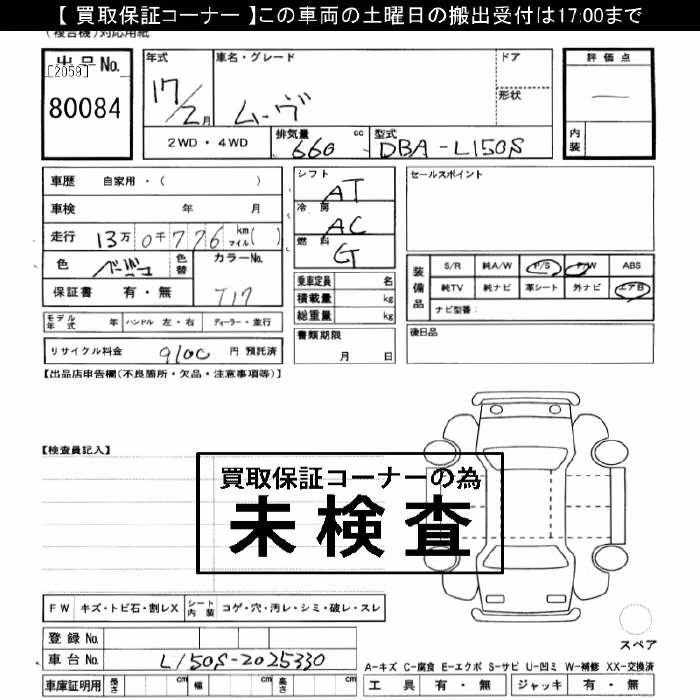 【 買取保証コーナー 】この車両の土曜日の搬出受付は17:00まで
(複合機)対応用紙
出品No.
[2059]
80084
年式
17/2月
車名・グレード
ムーヴ
ドア
形状
評価点
内装
2WD ・ 4WD
排気量 660 cc
型式 DBA-L150S
車歴 自家用・( )
車検 年 月
走行 13万 0千 776 km マイル( )
色 ベージュ 色替 カラーNo. T17
保証書 有・無
モデル年式 年 ハンドル 左・右 ディーラー・並行
リサイクル料金 9100 円 預託済
シフト AT
冷房 AC
燃料 G
乗車定員 名
積載量 kg
総重量 kg
書類期限
月 日
セールスポイント
装備品
S/R 純A/W P/S P/W ABS
純TV 純ナビ 革シート 外ナビ エアB
ナビ型番:
後日品
【出品店申告欄(不良箇所・欠品・注意事項等)】
【検査員記入】
買取保証コーナーの為
未検査
FW キズ・トビ石・割レX シート内装 コゲ・穴・汚レ・シミ・破レ・スレ
登録No.
車台No. L150S-2025330
車庫証明用 長さ cm 幅 cm 高さ cm
スペア
A-キズ C-腐食 E-エクボ S-サビ U-凹ミ W-補修 XX-交換済
工具 有・無 ジャッキ 有・無